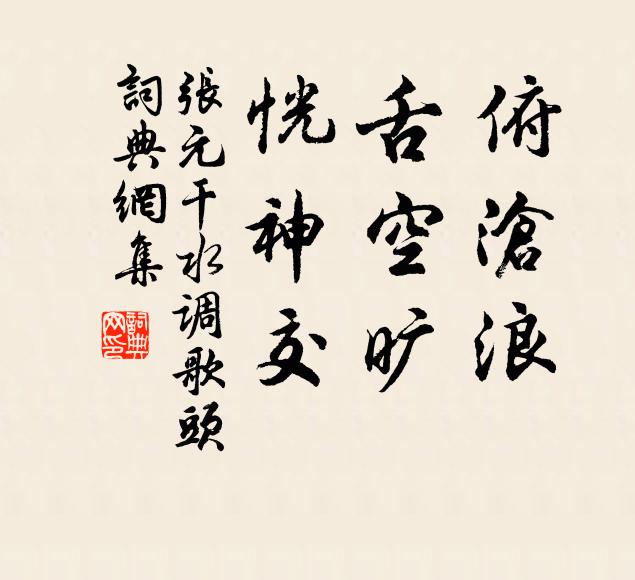 俯滄浪
舌空旷
恍神交
張元干水调歌頭
詞典網集
詞典網印